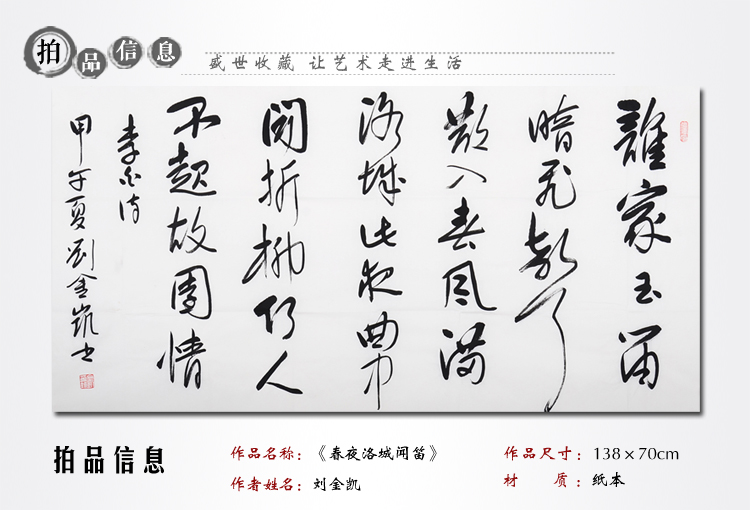 拍品信息
盛世收藏 让艺术走进生活
誰家玉笛
暗飛聲
散入春風滿
洛城此夜曲中
聞折柳何人
不起故園情
李白詩
甲午夏劉金凱書
拍品信息
作品名称：《春夜洛城闻笛》
作者姓名：刘金凯
作品尺寸：138×70cm
材 质：纸本